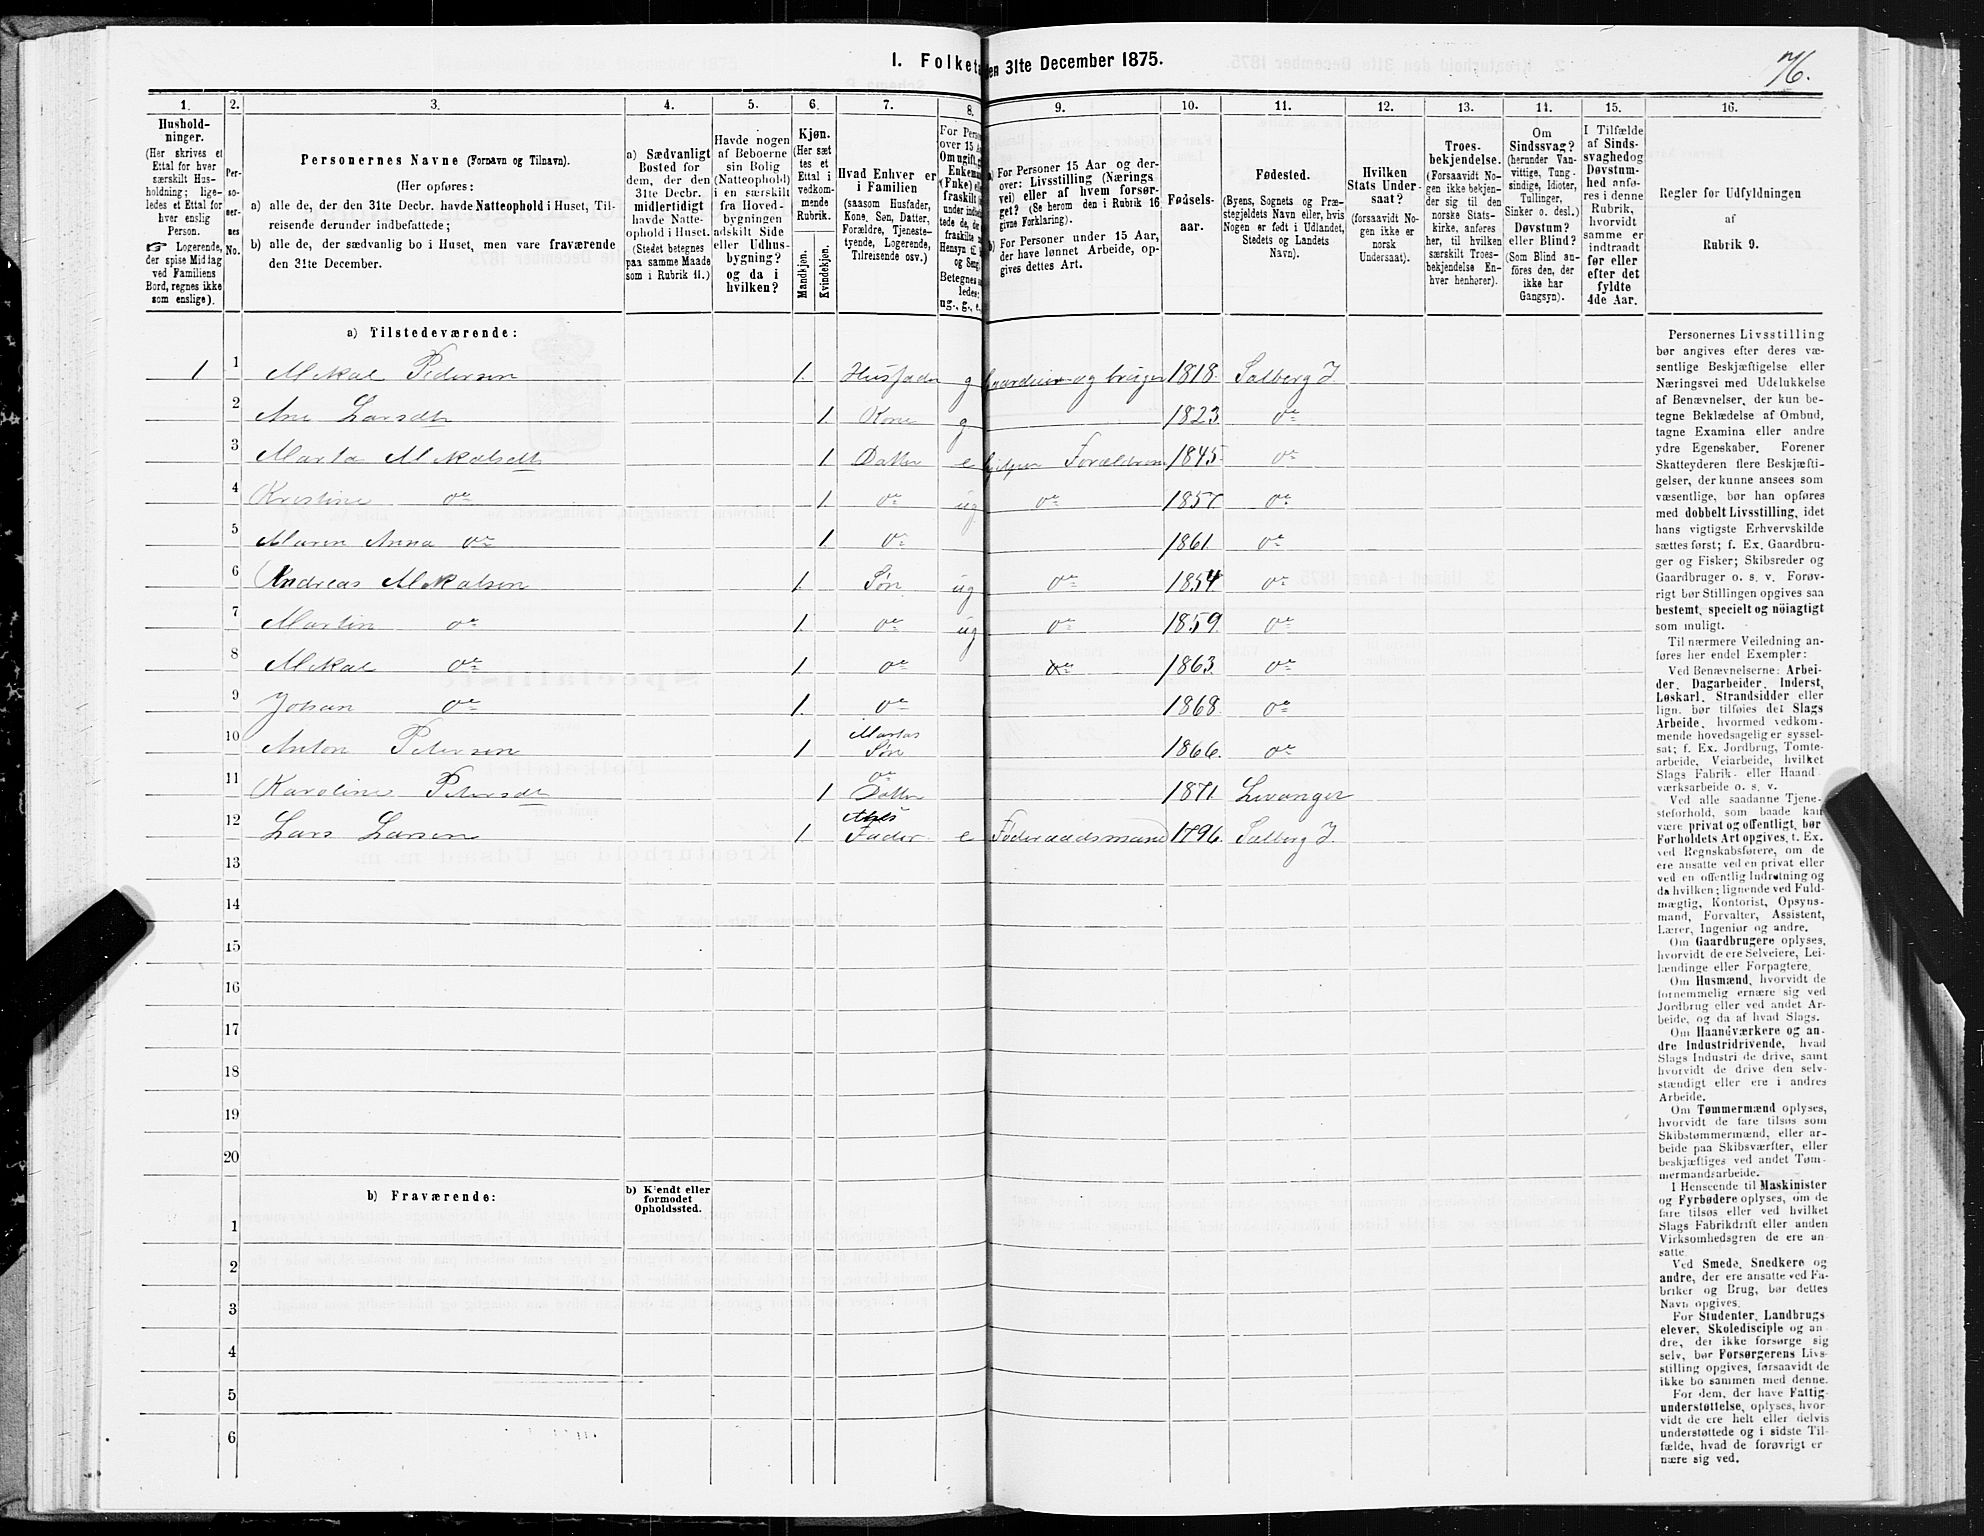 I. Folketa
en 31te December 1875.
76.
1. 2. 3. 4. 5. 6. 7. 8. 9. 10. 11. 12. 13. 14. 15. 16.
Hushold-
ninger.
(Her skrives et
Ettal for hver
særskilt Hus-
holdning; lige-
ledes et Ettal for
hver enslig
Person.
☞ Logerende,
der spise Middag
ved Familiens
Bord, regnes ikke
som enslige).
Per-
so-
ner-
nes
No.
Personernes Navne (Fornavn og Tilnavn).
(Her opføres:
a) alle de, der den 31te Decbr. havde Natteophold i Huset, Til-
reisende derunder indbefattede;
b) alle de, der sædvanlig bo i Huset, men vare fraværende
den 31te December.
a) Sædvanligt
Bosted for
dem, der den
31te Decbr.
midlertidigt
havde Natte-
ophold i Huset.
(Stedet betegnes
paa samme Maade
som i Rubrik 11.)
Havde nogen
af Beboerne
sin Bolig
(Natteophold)
i en særskilt
fra Hoved-
bygningen
adskilt Side
eller Udhus-
bygning?
og da i
hvilken?
Kjøn.
(Her sæt
tes et
Ettal i
vedkom-
mende
Rubrik.
Mandkjøn.
Kvindekjøn.
Hvad Enhver er
i Familien
(saasom Husfader,
Kone, Søn, Datter,
Forældre, Tjeneste-
tyende, Logerende,
Tilreisende osv.)
For Perso
over 15 Aa
Om ugift, g
Enkema
(Enke) el
fraskilt
under indse
tede de, de
fraskilte
Hensyn til
og Seng.
Betegnes s
ledes:
ug., g., e.
a) For Personer 15 Aar og der-
over: Livsstilling (Nærings
vei) eller af hvem forsør-
get? (Se herom den i Rubrik 16
givne Forklaring).
b) For Personer under 15 Aar,
der have lønnet Arbeide, op-
gives dettes Art.
Fødsels-
aar.
Fødested.
(Byens, Sognets og Præ-
stegjeldets Navn eller, hvis
Nogen er født i Udlandet,
Stedets og Landets
Navn).
Hvilken
Stats Under-
saat?
(forsaavidt No-
gen ikke er
norsk
Undersaat).
Troes-
bekjendelse.
(Forsaavidt No-
gen ikke bekjen-
der sig til den
norske Stats-
kirke, anføres
her, til hvilken
særskilt Troes-
bekjendelse En-
hver henhører).
Om
Sindssvag?
(herunder Van-
vittige, Tung-
sindige, Idioter,
Tullinger,
Sinker o. desl.)
Døvstum?
eller Blind?
(Som Blind an-
føres den, der
ikke har
Gangsyn).
I Tilfælde
af Sinds-
svaghedog
Døvstum-
hed anfø-
res i denne
Rubrik,
hvorvidt
samme er
indtraadt
før eller
efter det
fyldte
4de Aar.
Regler for Udfyldningen
af
Rubrik 9.
a) Tilstedeværende:
1 1 Mikal Pedersen 1. Husfader g Gaardeier og bruger 1818. Salberg I.
2 Ane Larsdt 1. Kone g 1823. do
3 Marta Mikalsdt 1. Datter e hjelper Forældrene 1845. do
4 Kristine do 1. do ug do 1857. do
5 Maren Anna do 1. do 1861 do
6 Andreas Mikalsen 1. Søn ug do 1854. do
7 Martin do 1. do ug do 1859. do
8 Mikal do 1. do do 1863. do
9 Johan do 1. do 1868. do
10 Anton Petersen 1. Martas Søn 1866. do
11 Karoline Petersdt 1 do Datter 1871 Levanger
12 Lars Larsen 1. Anes Fader e Føderaadsmand 1796. Salberg I.
13
14
15
16
17
18
19
20
b) Fraværende:
b) Kjendt eller
formodet
Opholdssted.
1
2
3
4
5
6
Personernes Livsstilling
bør angives efter deres væ-
sentlige Beskjæftigelse eller
Næringsvei med Udelukkelse
af Benævnelser, der kun be-
tegne Beklædelse af Ombud,
tagne Examina eller andre
ydre Egenskaber. Forener
Skatteyderen flere Beskjæfti-
gelser, der kunne ansees som
væsentlige, bør han opføres
med dobbelt Livsstilling, idet
hans vigtigste Erhvervskilde
sættes først; f. Ex. Gaardbru-
ger og Fisker; Skibsreder og
Gaardbruger o. s. v. Forøv-
rigt bør Stillingen opgives saa
bestemt, specielt og nöiagtigt
som muligt.
Til nærmere Veiledning an-
føres her endel Exempler:
Ved Benævnelserne: Arbei-
der, Dagarbeider, Inderst,
Løskarl, Strandsidder eller
lign. bør tilføies det Slags
Arbeide, hvormed vedkom-
mende hovedsagelig er syssel-
sat; f. Ex. Jordbrug, Tomte-
arbeide, Veiarbeide, hvilket
Slags Fabrik- eller Haand
værksarbeide o. s. v.
Ved alle saadanne Tjene-
steforhold, som baade kan
være privat og offentligt, bør
Forholdets Art opgives, t. Ex.
ved Regnskabsførere, om de
ere ansatte ved en privat eller
ved en offentlig Indretning og
da hvilken; lignende ved Fuld-
mægtig, Kontorist, Opsyns-
mand, Forvalter, Assistent,
Lærer, Ingeniør og andre.
Om Gaardbrugere oplyses,
hvorvidt de ere Selveiere, Lei-
lændinge eller Forpagtere.
Om Husmænd, hvorvidt de
fornemmelig ernære sig ved
Jordbrug eller ved andet Ar-
beide, og da af hvad Slags.
Om Haandværkere og an-
dre Industridrivende, hvad
Slags Industri de drive, samt
hvorvidt de drive den selv-
stændigt eller ere i andres
Arbeide.
Om Tømmermænd oplyses,
hvorvidt de fare tilsøs som
Skibstømmermænd, eller ar-
beide paa Skibsværfter, eller
beskjæftiges ved andet Tøm-
mermandsarbeide.
I Henseende til Maskinister
og Fyrbødere oplyses, om de
fare tilsøs eller ved hvilket
Slags Fabrikdrift eller anden
Virksomhedsgren de ere an-
satte.
Ved Smede, Snedkere og
andre, der ere ansatte ved Fa-
briker og Brug, bør dettes
Navn opgives.
For Studenter, Landbrugs
elever, Skoledisciple og an-
dre, der ikke forsørge sig
selv, bør Forsørgerens Livs-
stilling opgives, forsaavidt de
ikke bo sammen med denne.
For dem, der have Fattig-
understøttelse, oplyses, hvor
vidt de ere helt eller delvis
understøttede og i sidste Til-
fælde, hvad de forøvrigt er
nære sig ved.